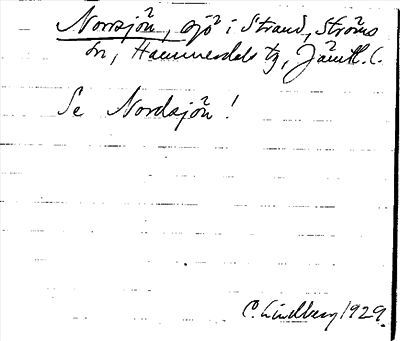 Norrsjön, sjö i Strand, Ströms
sn, Hammerdals tg, Jämtl. l.
Se Nordsjön!
C. Lindberg 1929.